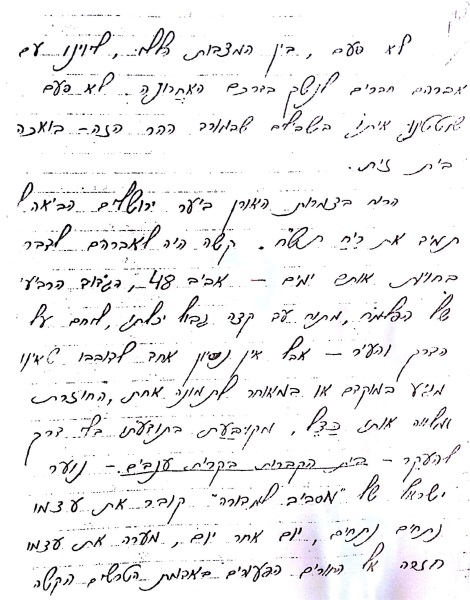 לא פעם, בין המצבות הללו, ליוינו עם
אברהם חברים לנשק בדרכם האחרונה. לא פעם
שוטטנו איתו בשבילים שבמורד ההר הזה – בואכה
בית זית.
הרוח בצמרות האורן ביער ירושלים הביאה ל
תמיד את ריח תש"ח. קשה היה לאברהם לדבר
בחוויות אותם ימים – אביב 48, הגדוד הרביעי
של הפלמ"ח, מתוח עד קצה גבול יכולתו, לוחם על
הדרך והעיר – אבל אין נסיון אחד לדובבו שאינו
מגיע במוקדם או במאוחר לתמונה אחת, החוזרת
ומלווה אותו כצל, מקובעת בתודעתו בלי דרך
להעקר – בית הקברות בקרית ענבים. – נוער
ישראל של "מסביב למדורה" קובר את עצמו
נתחים נתחים, יום אחר יום, מערה את עצמו
חזרה אל החורים הפעורים באדמת הטרשים הקשה